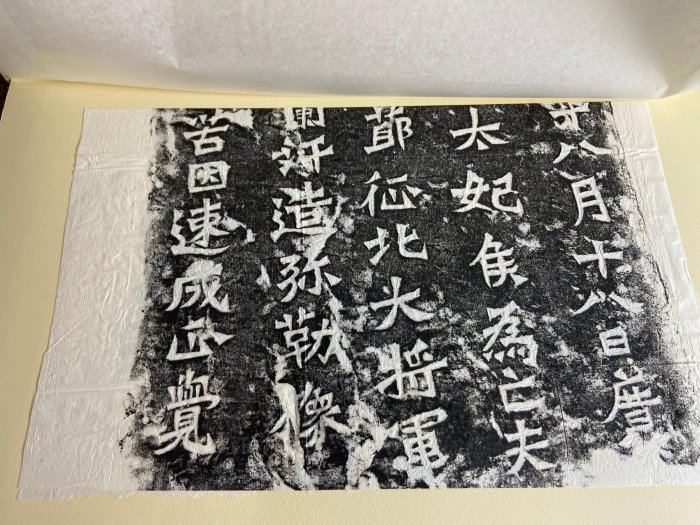 年八月十八日廣
太妃侯為亡夫
節征北大將軍
蘭汗造弥勒像
苦因速成正覺